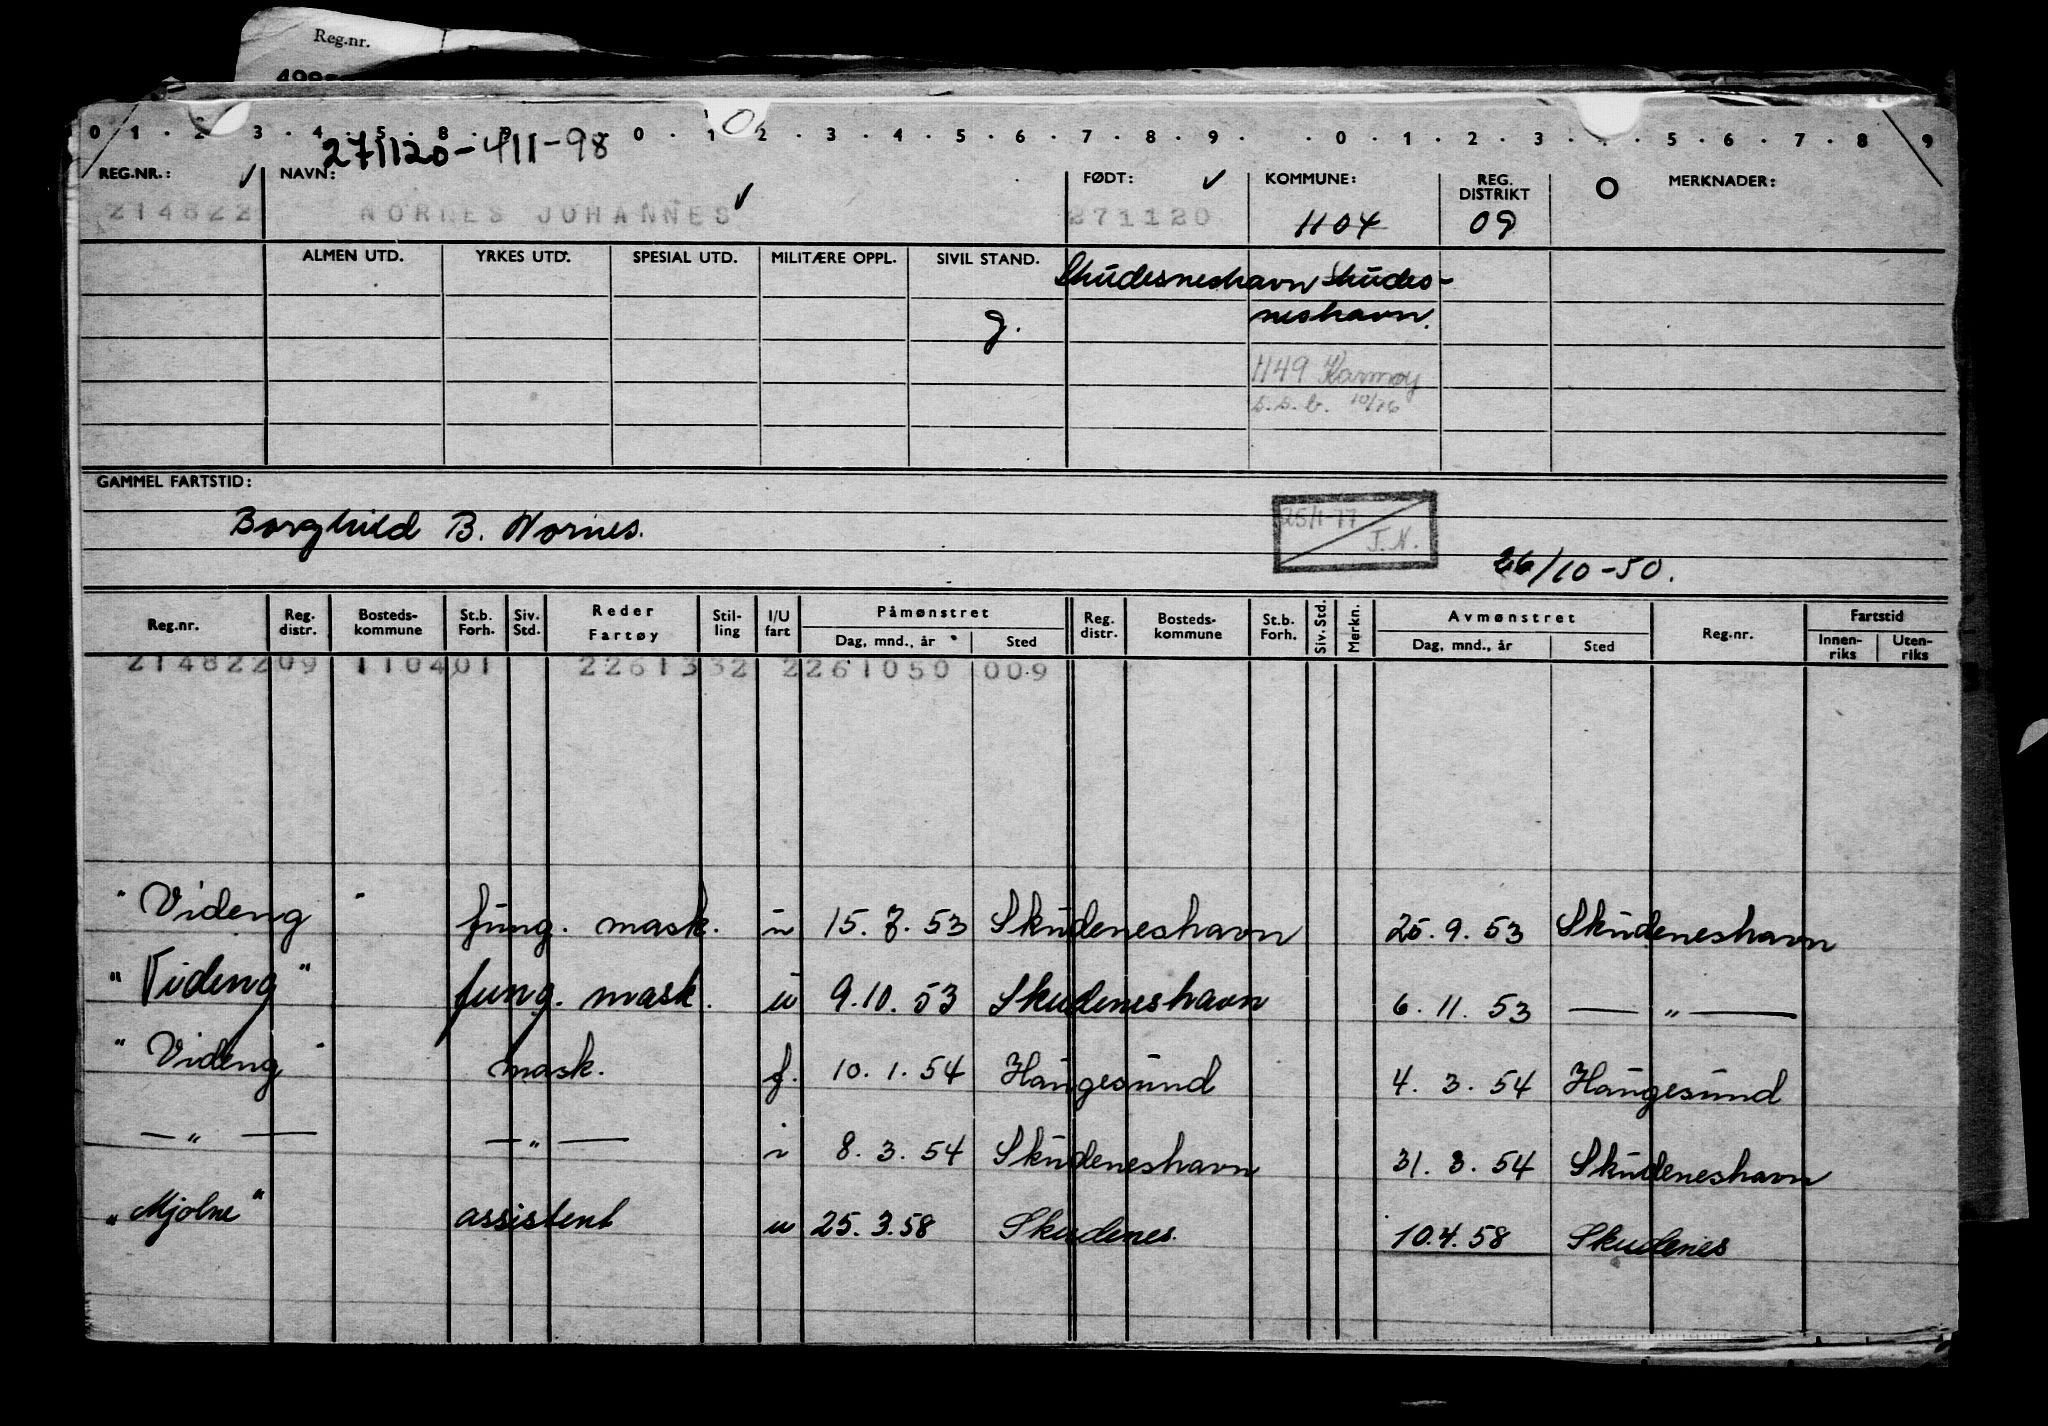 Reg.nr.
0 1 . 2 . 3 . 4 . 5 . 8 . 9 . 0 . 1 . 2 . 3 . 4 . 5 . 6 . 7 . 8 . 9 . . 0 . 1 . 2 . 3 . . 5 . 6 . 7 . 8 . 9
271120-411-98
REG.NR.: NAVN: FØDT: KOMMUNE: REG. DISTRIKT MERKNADER:
214822 NORNES JOHANNES 271120 1104 09
ALMEN UTD. YRKES UTD. SPESIAL UTD. MILITÆRE OPPL. SIVIL STAND. Skudesneshavn Skudes-
g. neshavn.
1149 Karmøy
s.s.b. 10/76
GAMMEL FARTSTID:
Borghild B. Nornes.
25/1-77
T.N.
26/10-50.
Reg.nr. Reg. distr. Bosteds- kommune St.b. Forh. Siv. Std. Reder Fartøy Stil- ling I/U fart Påmønstret Dag, mnd., år Sted Reg. distr. Bosteds- kommune St.b. Forh. Siv. Std. Merkn. Avmønstret Dag, mnd., år Sted Reg.nr. Fartstid Innen- riks Uten- riks
214822 09 1104 01 2261332 2261050 009
"Videng" fung. mask. 15. 7. 53 Skudeneshavn 25. 9. 53 Skudeneshavn
"Videng" fung. mask. u 9.10. 53 Skudeneshavn 6. 11. 53 — " —
"Videng" mask. f. 10. 1. 54 Haugesund 4. 3. 54 Haugesund
— " — — " — i 8. 3. 54 Skudeneshavn 31. 3. 54 Skudeneshavn
"Mjølne" assistent u 25. 3. 58 Skudenes. 10. 4. 58 Skudenes